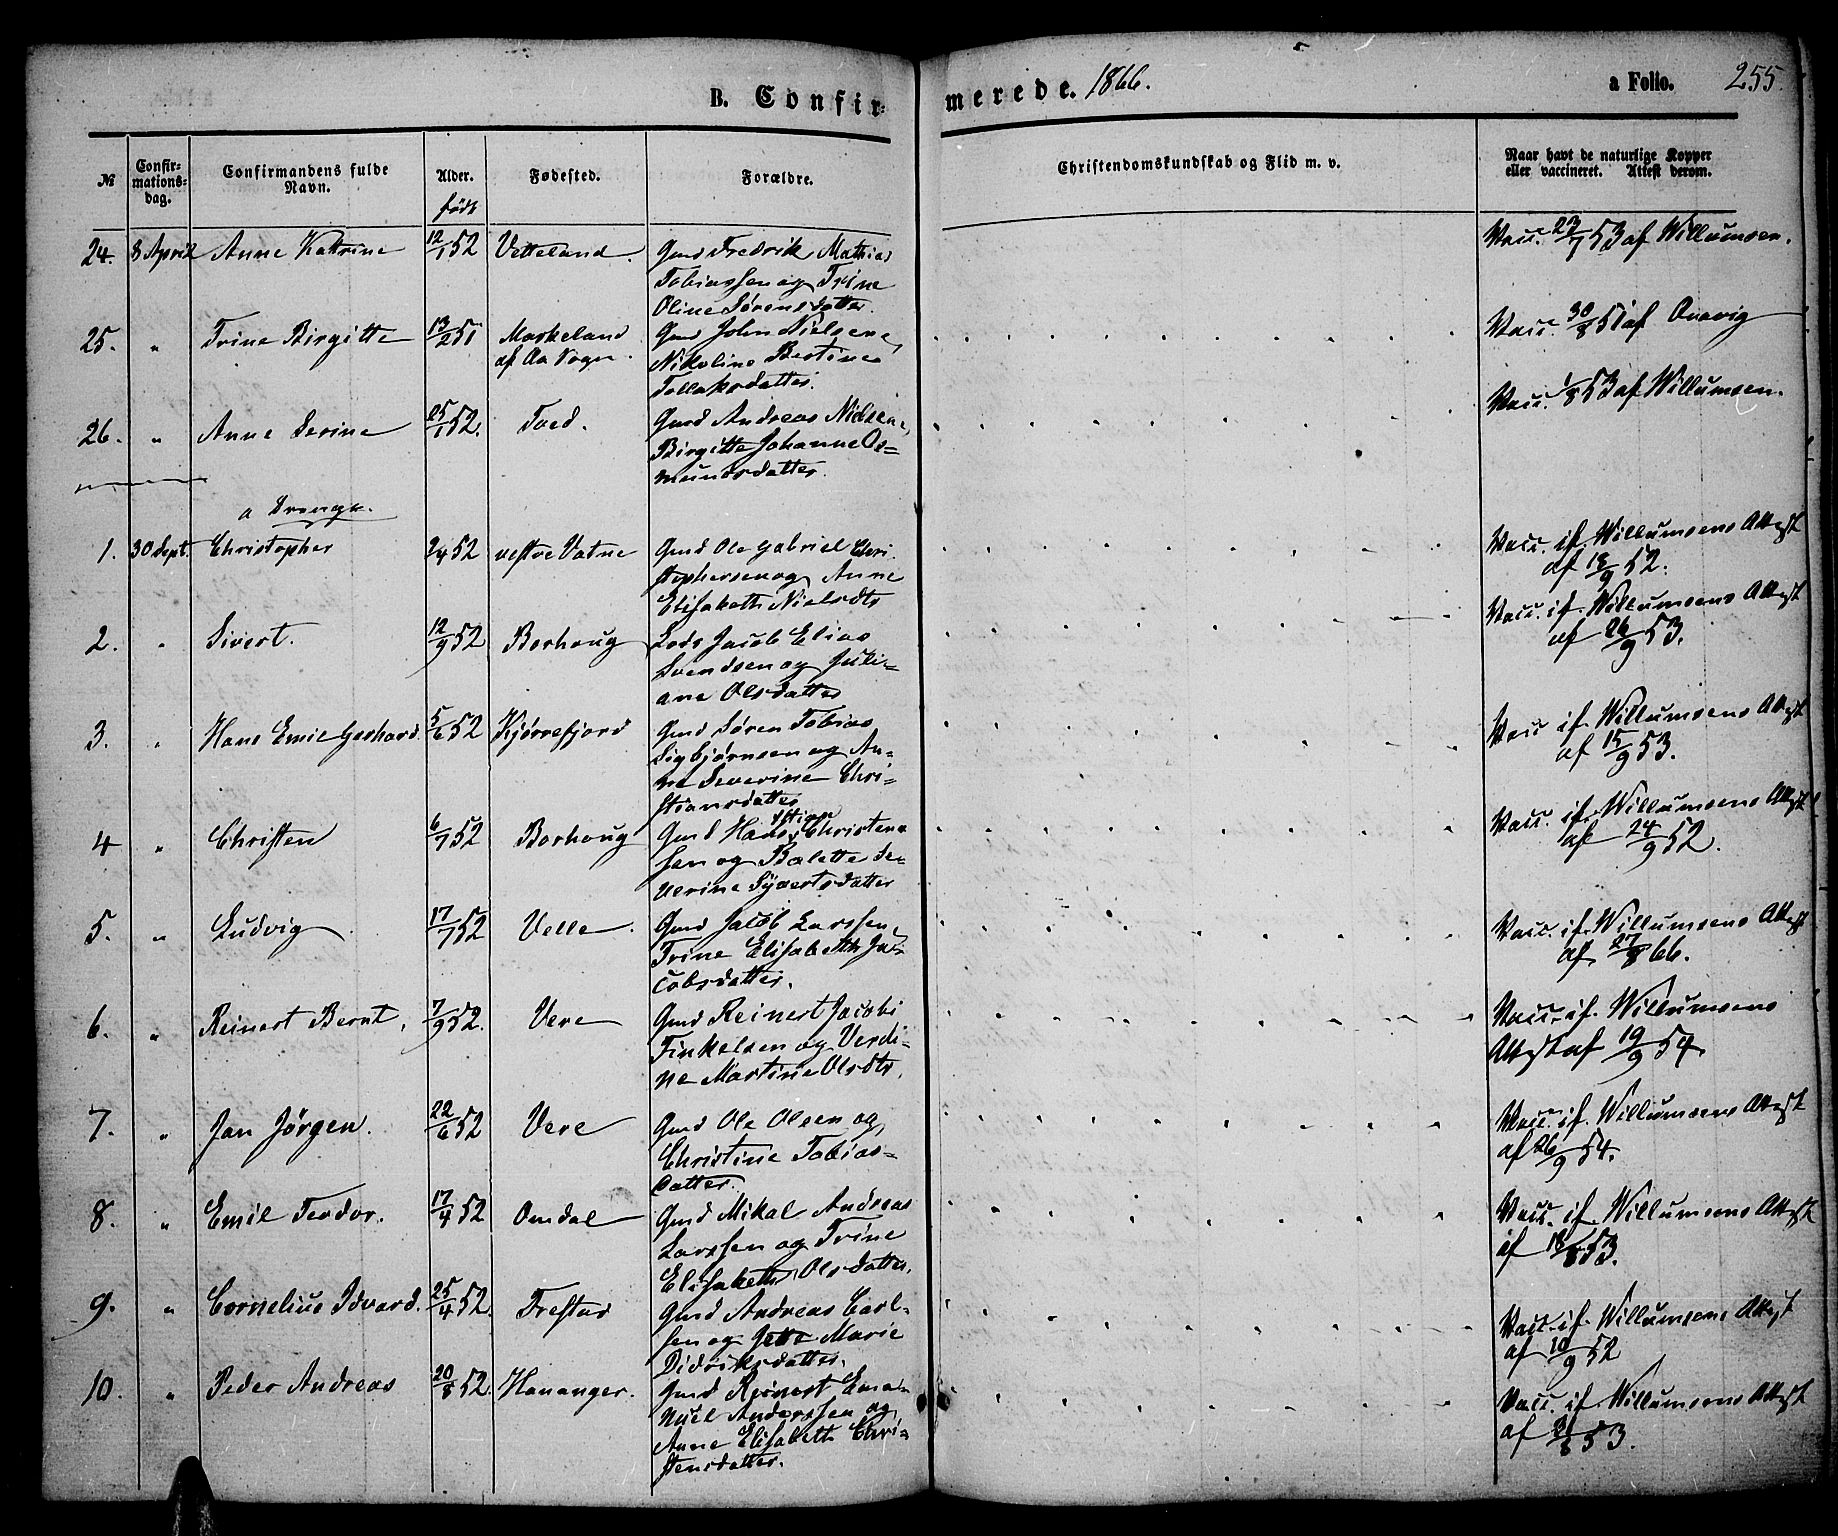 B. Confir-
merede. 1866.
a Folio. 255.
№
Confir-
mations-
dag.
Confirmandens fulde
Navn.
Alder.
født
Fødested.
Forældre.
Christendomskundskab og Flid m. v.
Naar havt de naturlige Kopper
eller vaccineret. Attest derom.
24. 8 April Anne Kattrine 12/1 52 Vetteland. Gmd Fredrik Mathias
Tobiassen og Trine
Oline Sørensdatter.
Vacc. 23/7 53 af Willumsen.
25. " Trine Birgitte 13/2 51 Maskeland
af Aa Sogn.
Gmd John Nielsen,
Nikoline Bertine
Tollaksdatter.
Vacc. 30/8 51 af
26. " Anne Serine 25/1 52. Toed. Gmd Andreas Nielsen,
Birgitte Johanne Os-
mundsdatter.
Vacc. 1/8 53 af Willumsen.
a Drenge.
1. 30 Sept. Christopher 2/4 52 vestre Vatne Gmd Ole Gabriel Chri
stophersen og Anne
Elisabeth Nielsdtr
Vacc. if. Willumsens Attest
af 18/9 52.
2. " Sivert. 12/9 52 Borhoug Lods Jacob Elias
Svendsen og Juli-
ane Olsdatter
Vacc. if. Willumsens Attest
af 26/9 53.
3. " Hans Emil Gerhard. 5/6 52 Kjørrefjord Gmd Søren Tobias
Sigbjørnsen og An-
ne Severine Chri-
stiansdatter
Vacc if. Willumsens Attest
af 15/9 53.
4 " Christen 6/7 52 Borhoug Gmd Hans Stian Christen
sen og Balette Se-
verine Syvertsdatter
Vacc. if. Willumsens Attest
af 24/9 52.
5. " Ludvig 17/7 52 Velle. Gmd Jacob Larssen,
Trine Elisabeth Ja-
cobsdatter.
Vacc. if. Willumsens Attest
af 27/8 66.
6. " Reinert Bernt, 7/9 52. Vere Gmd Reinert Jacobi
Tinkelsen og Verdi-
ne Martine Olsdtr.
Vacc. if. Willumsens
Attest af 19/9 54.
7. " Jan Jørgen. 22/6 52 Vere Gmd Ole Olsen og
Christine Tobias-
datter.
Vacc. if. Willumsens Attest
af 26/9 54.
8. " Emil Teodor. 17/4 52 Omdal Gmd Mikal Andreas
Larssen og Trine
Elisabeth Olsdatter.
Vacc. if. Willumsens Attest
af 18/8 53.
9. " Cornelius Edvard. 25/4 52. Trestad Gmd Andreas Carl-
sen og Jette Marie
Didriksdatter.
Vacc. if. Willumsens Attest
af 10/9 52
10. " Peder Andreas 20/8 52. Hananger. Gmd Reinert Ema-
nuel Anderssen og
Anne Elisabeth Chri-
stensdatter.
Vacc. if. Willumsens Attest
af 53.